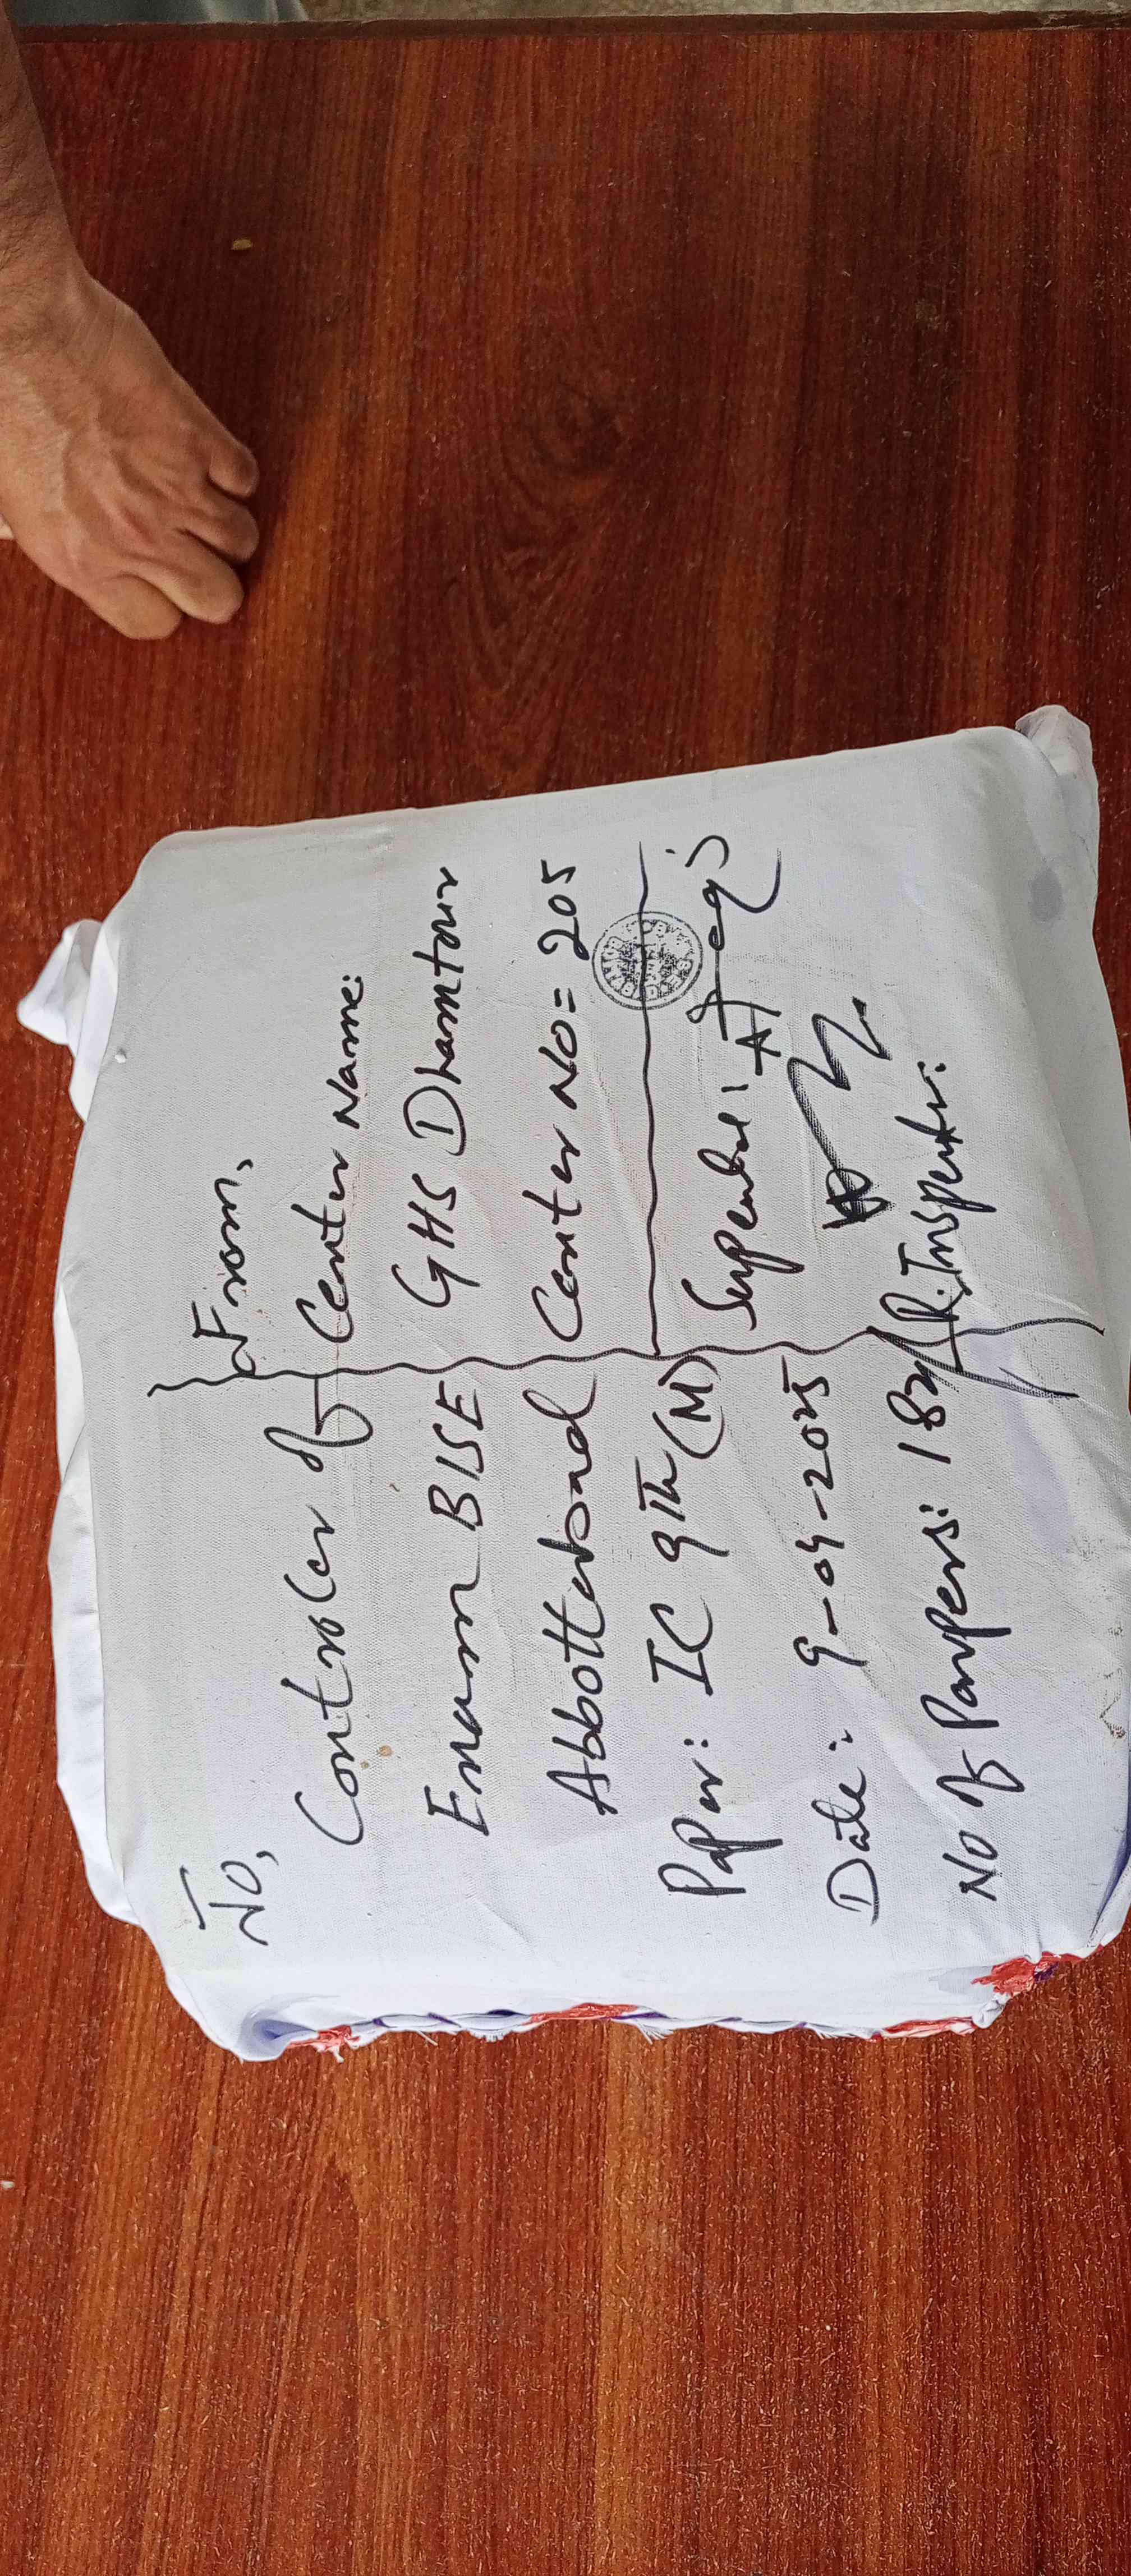 To,
Controler of
Enam BISE
Abbottabad
Paper: IC 9th (M)
Date: 9-04-2025
No of Papers: 182
From,
Center Name:
GHS Dhamtour
Center No= 205
R. Inspector: